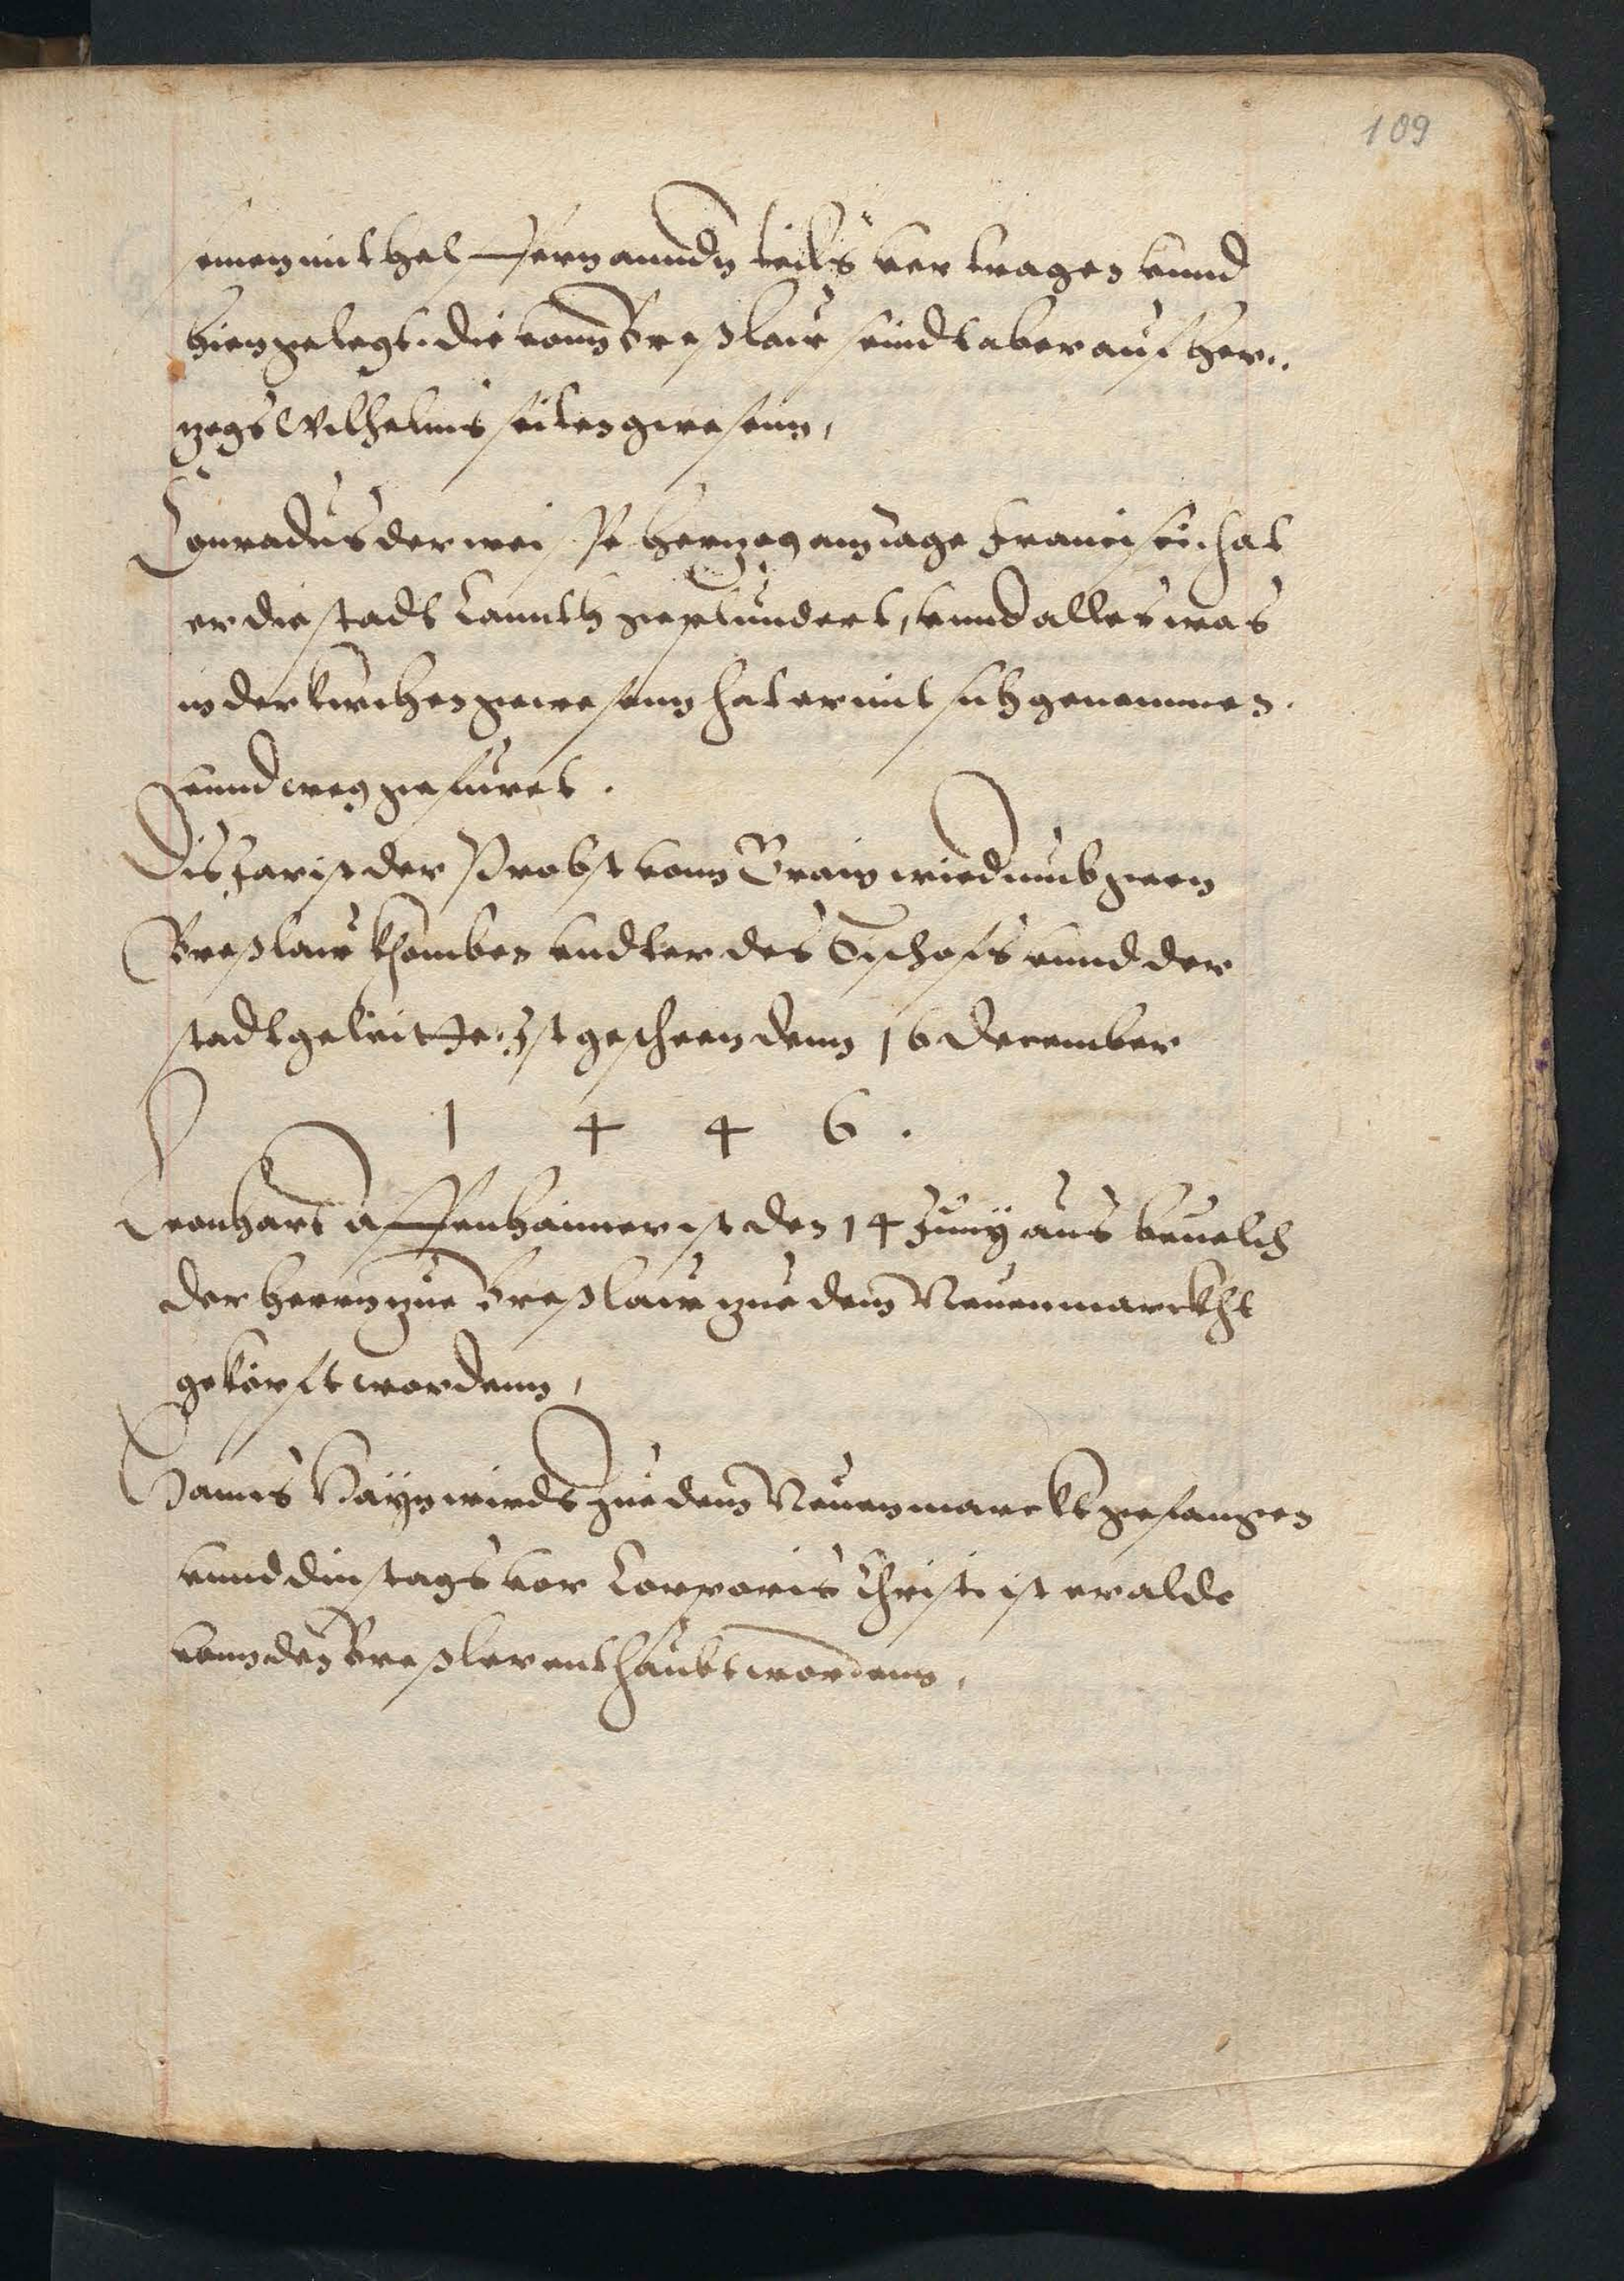 109
seinen mit helffern anndn teils vertragen vnnd
hiengelegt. die vonn Breßlaw seindt aber auf Her..
zogs Wilhelms seiten gwesenn,
Conradus der weisse Herzog am tage Francisci. hat
er die stadt Cannth geplundert, vnnd alles was
in der kirchen gewesenn hat er mit sich genommen.
vnnd weg gefuret.
Dis Jar ist der Probst vonn Crain wiedrumb geen
Breßlaw khomben vndter des Bischofs vnnd der
stadt geleitte. Ist gescheen denn 16 December
1 4 4 6 .
Leonhart Assenhaimer ist den 14 Juny aus beuelch
der herrn zue Breßlaw zue dem Neuenmarckht
gekopft wordenn,
Hanns Hayn wirdt zue dem Neuenmarckt gefangen
vnnd dinstags vor Corporis Christi ist er aldo
vonn den Breßler enthaubt wordenn,